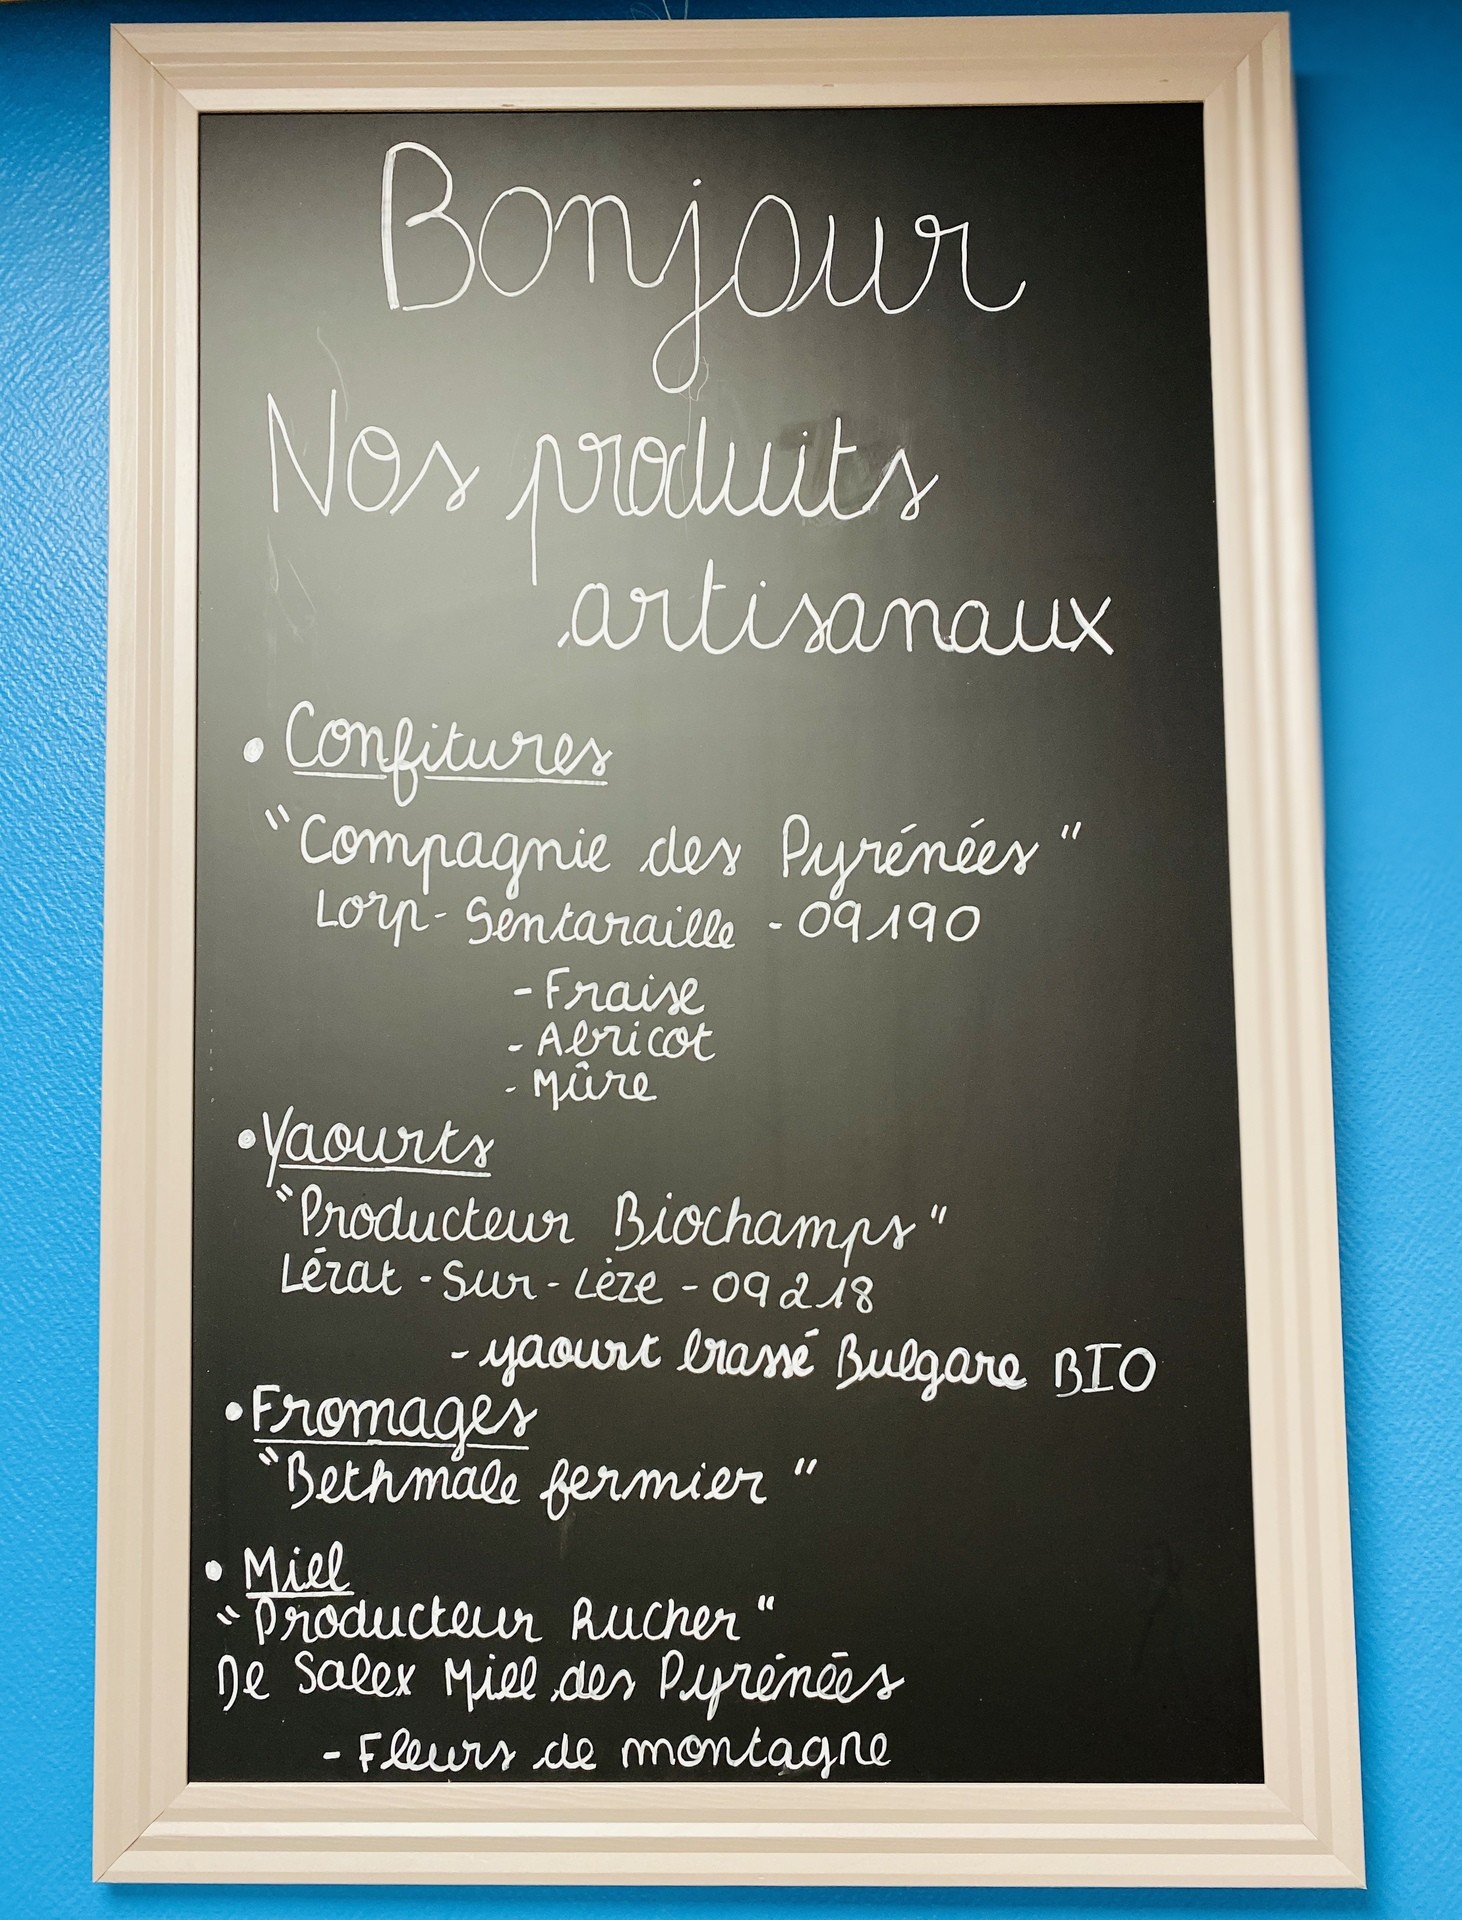 Bonjour
Nos produits
artisanaux
• Confitures
"Compagnie des Pyrénées"
Lorp-Sentaraille - 09190
- Fraise
- Abricot
- Mûre
• Yaourts
"Producteur Biochamps"
Lézat-Sur-Lèze - 09218
- yaourt brassé Bulgare BIO
• Fromages
"Bethmale fermier"
• Miel
"Producteur Rucher"
De Salex Miel des Pyrénées
- Fleurs de montagne